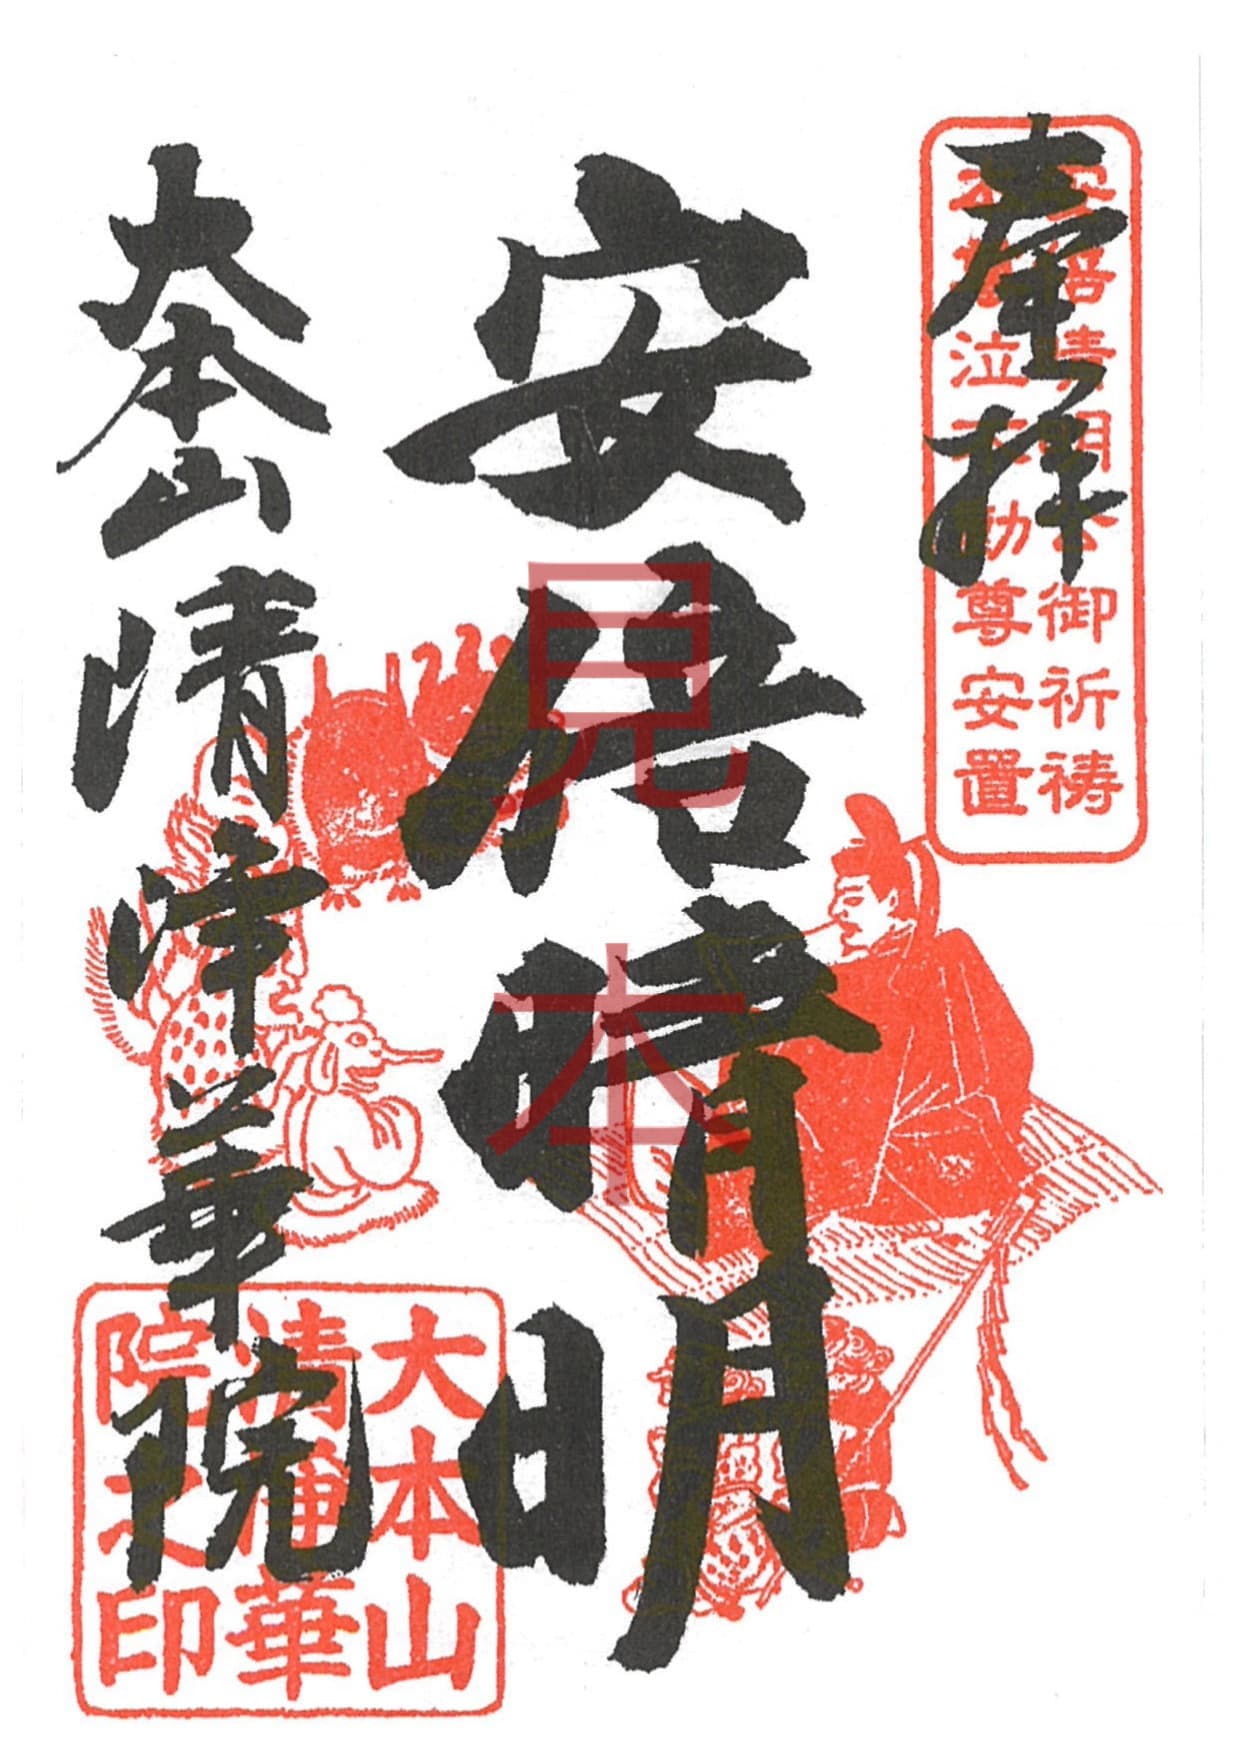 奉拝
安倍晴明公御祈祷
泣不動尊安置
安倍晴明
見本
大本山清浄華院
大本山
清浄華
院之印